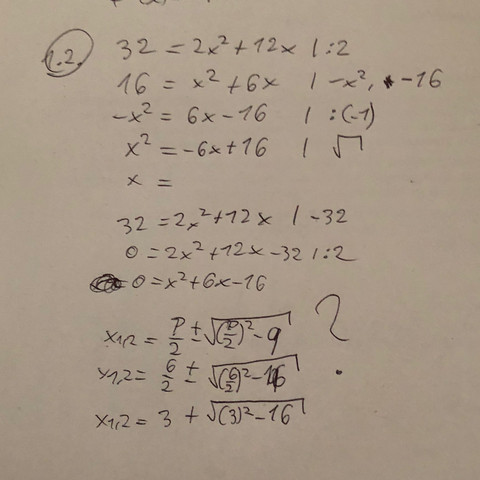 1.2. 32 = 2x² + 12x | :2
16 = x² + 6x | -x², -16
-x² = 6x - 16 | :(-1)
x² = -6x + 16 | √
x =
32 = 2x² + 12x | -32
0 = 2x² + 12x - 32 | :2
0 = x² + 6x - 16
x1,2 = p/2 ± √((p/2)² - q) ?
x1,2 = 6/2 ± √((6/2)² - 16)
x1,2 = 3 + √((3)² - 16)